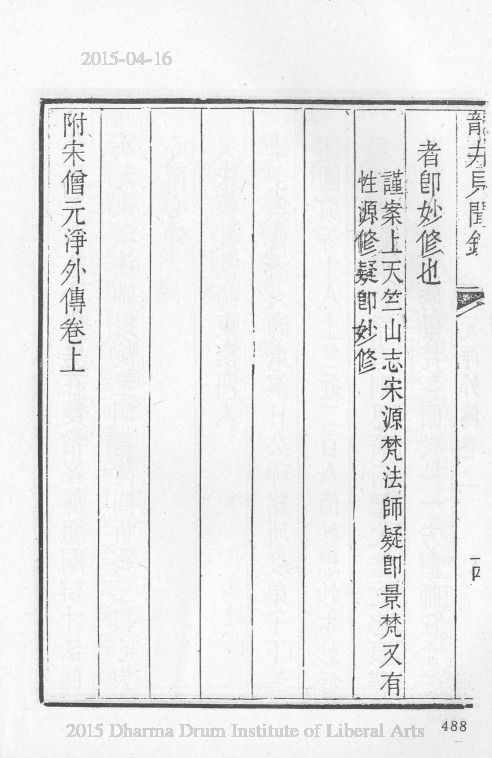 2015-04-16
龍井見聞錄
十四
者卽妙修也
謹案上天竺山志宋源梵法師疑卽景梵又有
性源修疑卽妙修
附宋僧元淨外傳卷上
2015 Dharma Drum Institute of Liberal Arts
488